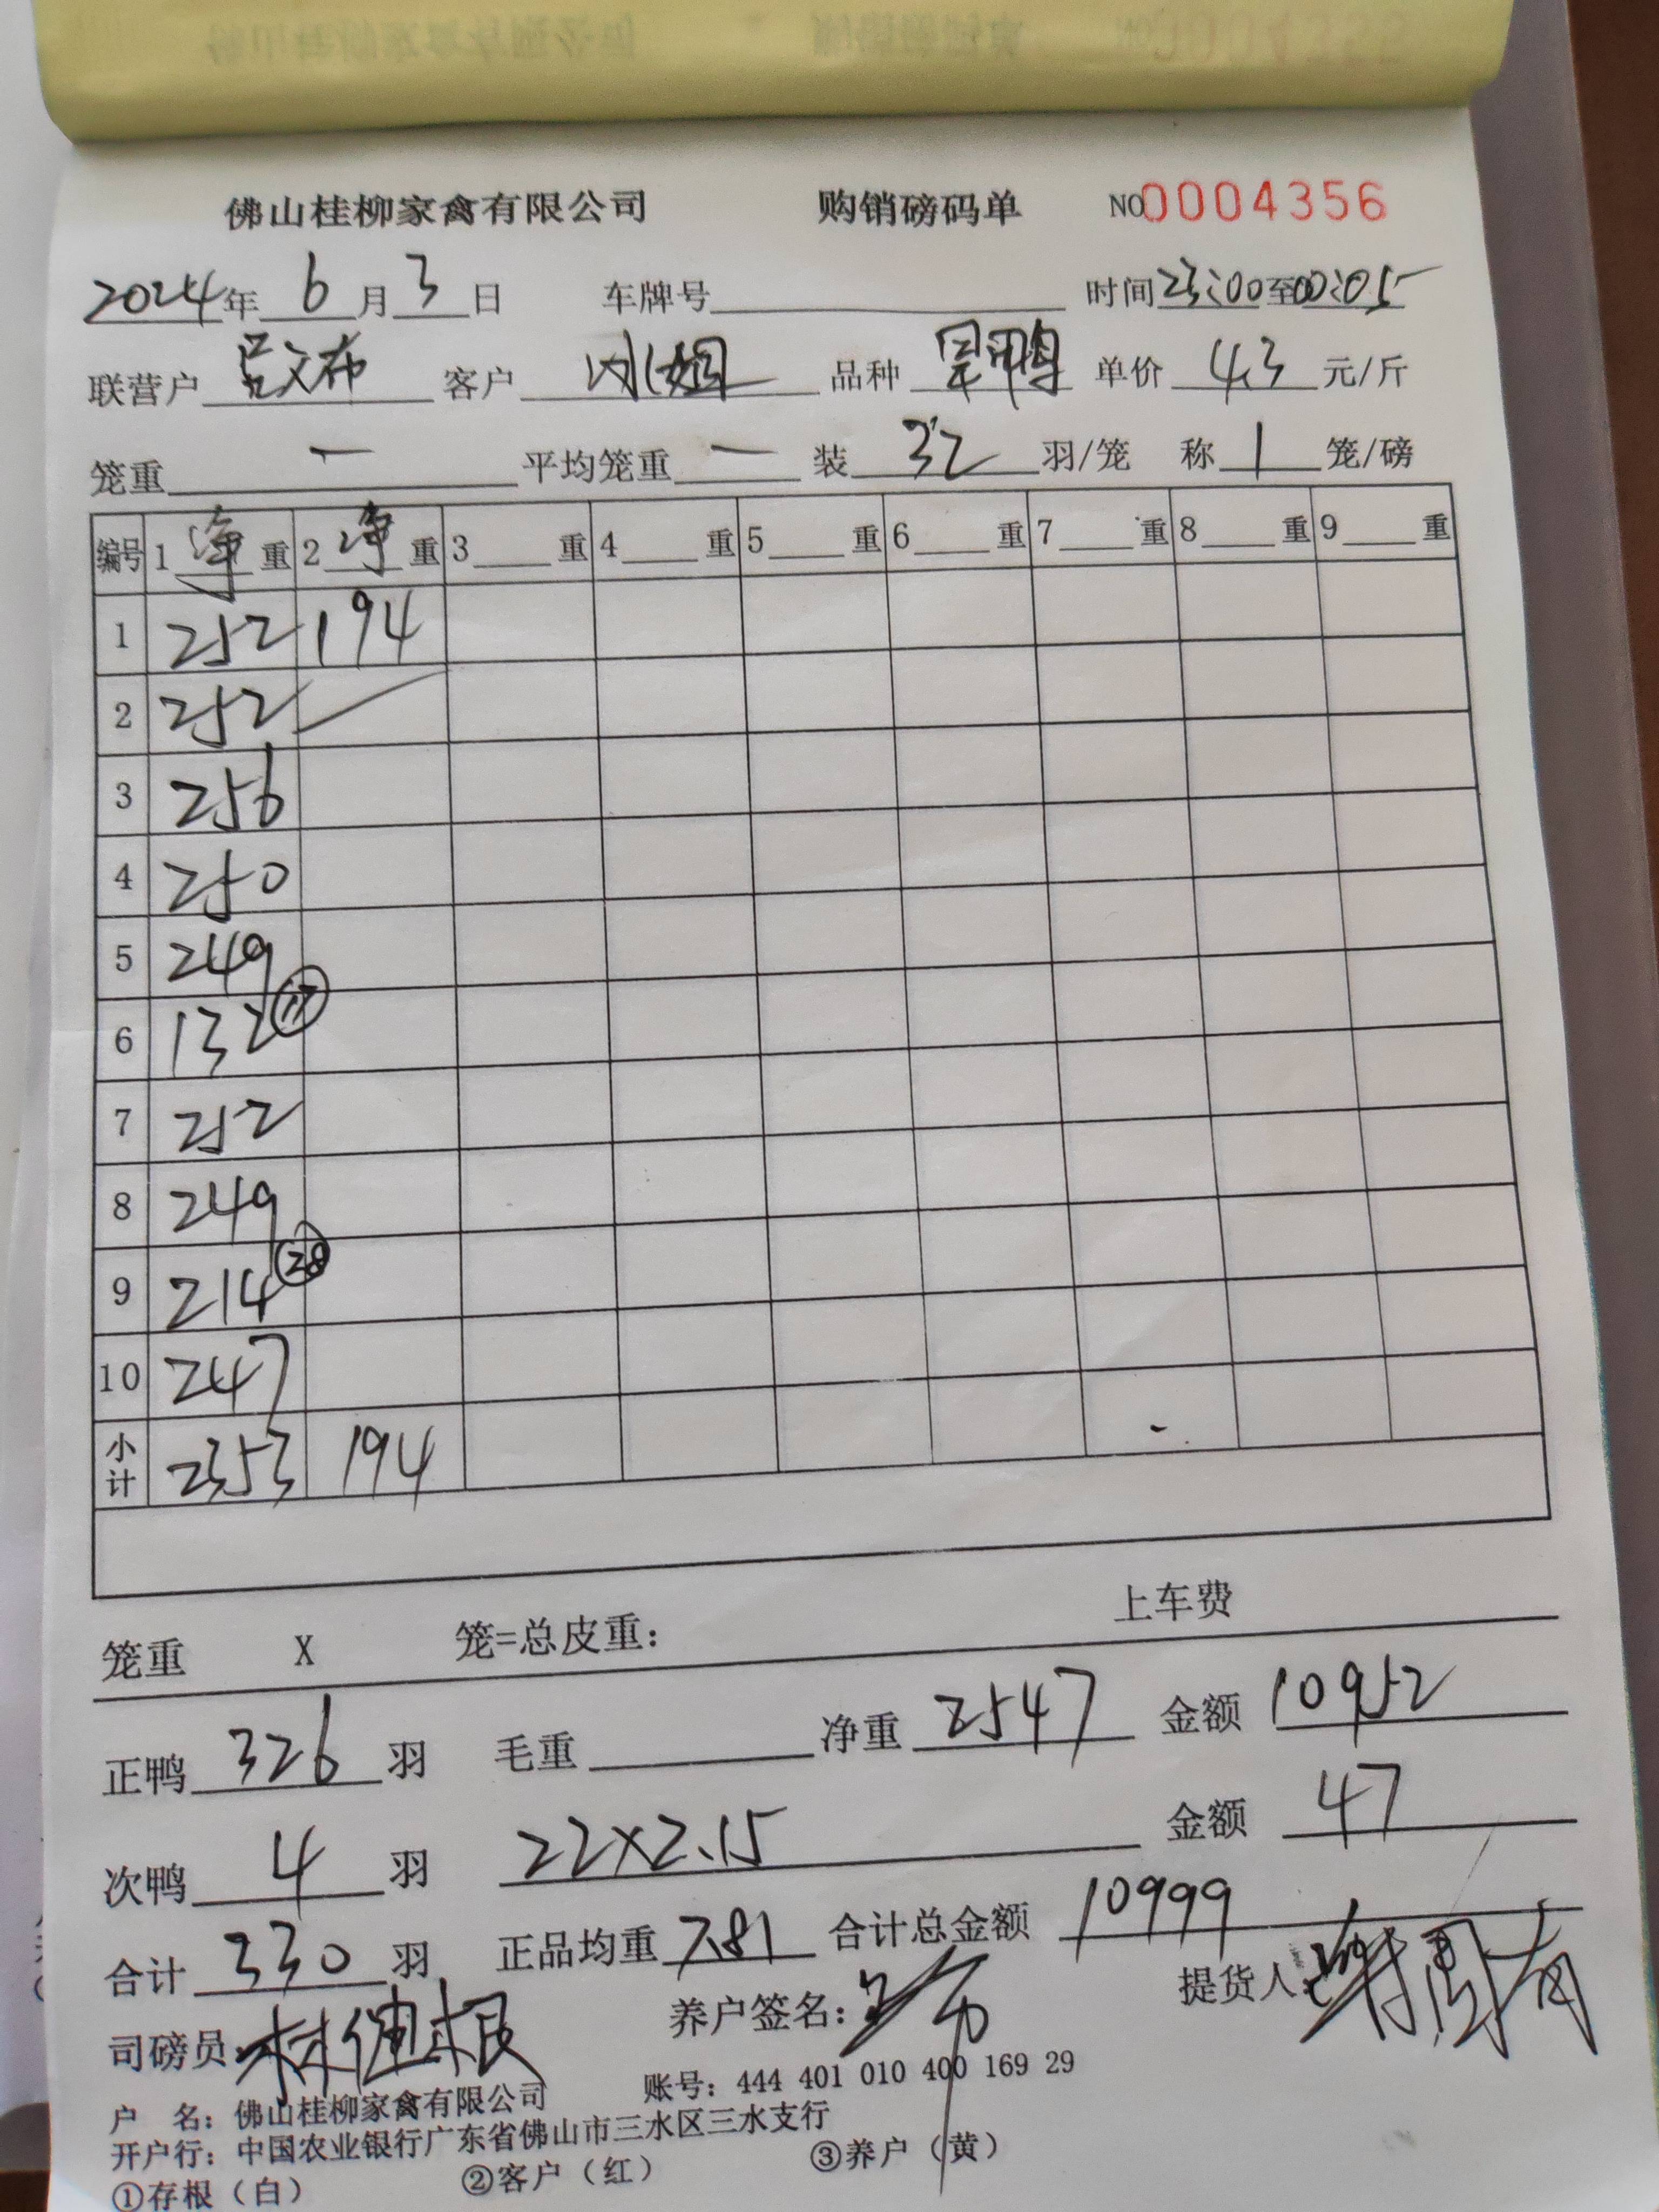 佛山桂柳家禽有限公司 购销磅码单 NO0004356
2024年 6月3日 车牌号 时间23:00至00:05
联营户 吕文布 客户 姐 品种 鸭 单价 4.3 元/斤
笼重 一 平均笼重 一 装 32 羽/笼 称 1 笼/磅
编号 1 净 重 2 净 重 3 重 4 重 5 重 6 重 7 重 8 重 9 重
1 252 194
2 252
3 256
4 250
5 249
6 132 ⑰
7 252
8 249
9 214 ㉘
10 247
小计 2353 194
上车费
笼重 X 笼=总皮重：
正鸭 326 羽 毛重 净重 2547 金额 10952
次鸭 4 羽 22×2.15 金额 47
合计 330 羽 正品均重 7.81 合计总金额 10999
司磅员：林继根 养户签名： 提货人：
户 名：佛山桂柳家禽有限公司 账号：444 401 010 400 169 29
开户行：中国农业银行广东省佛山市三水区三水支行
①存根（白） ②客户（红） ③养户（黄）